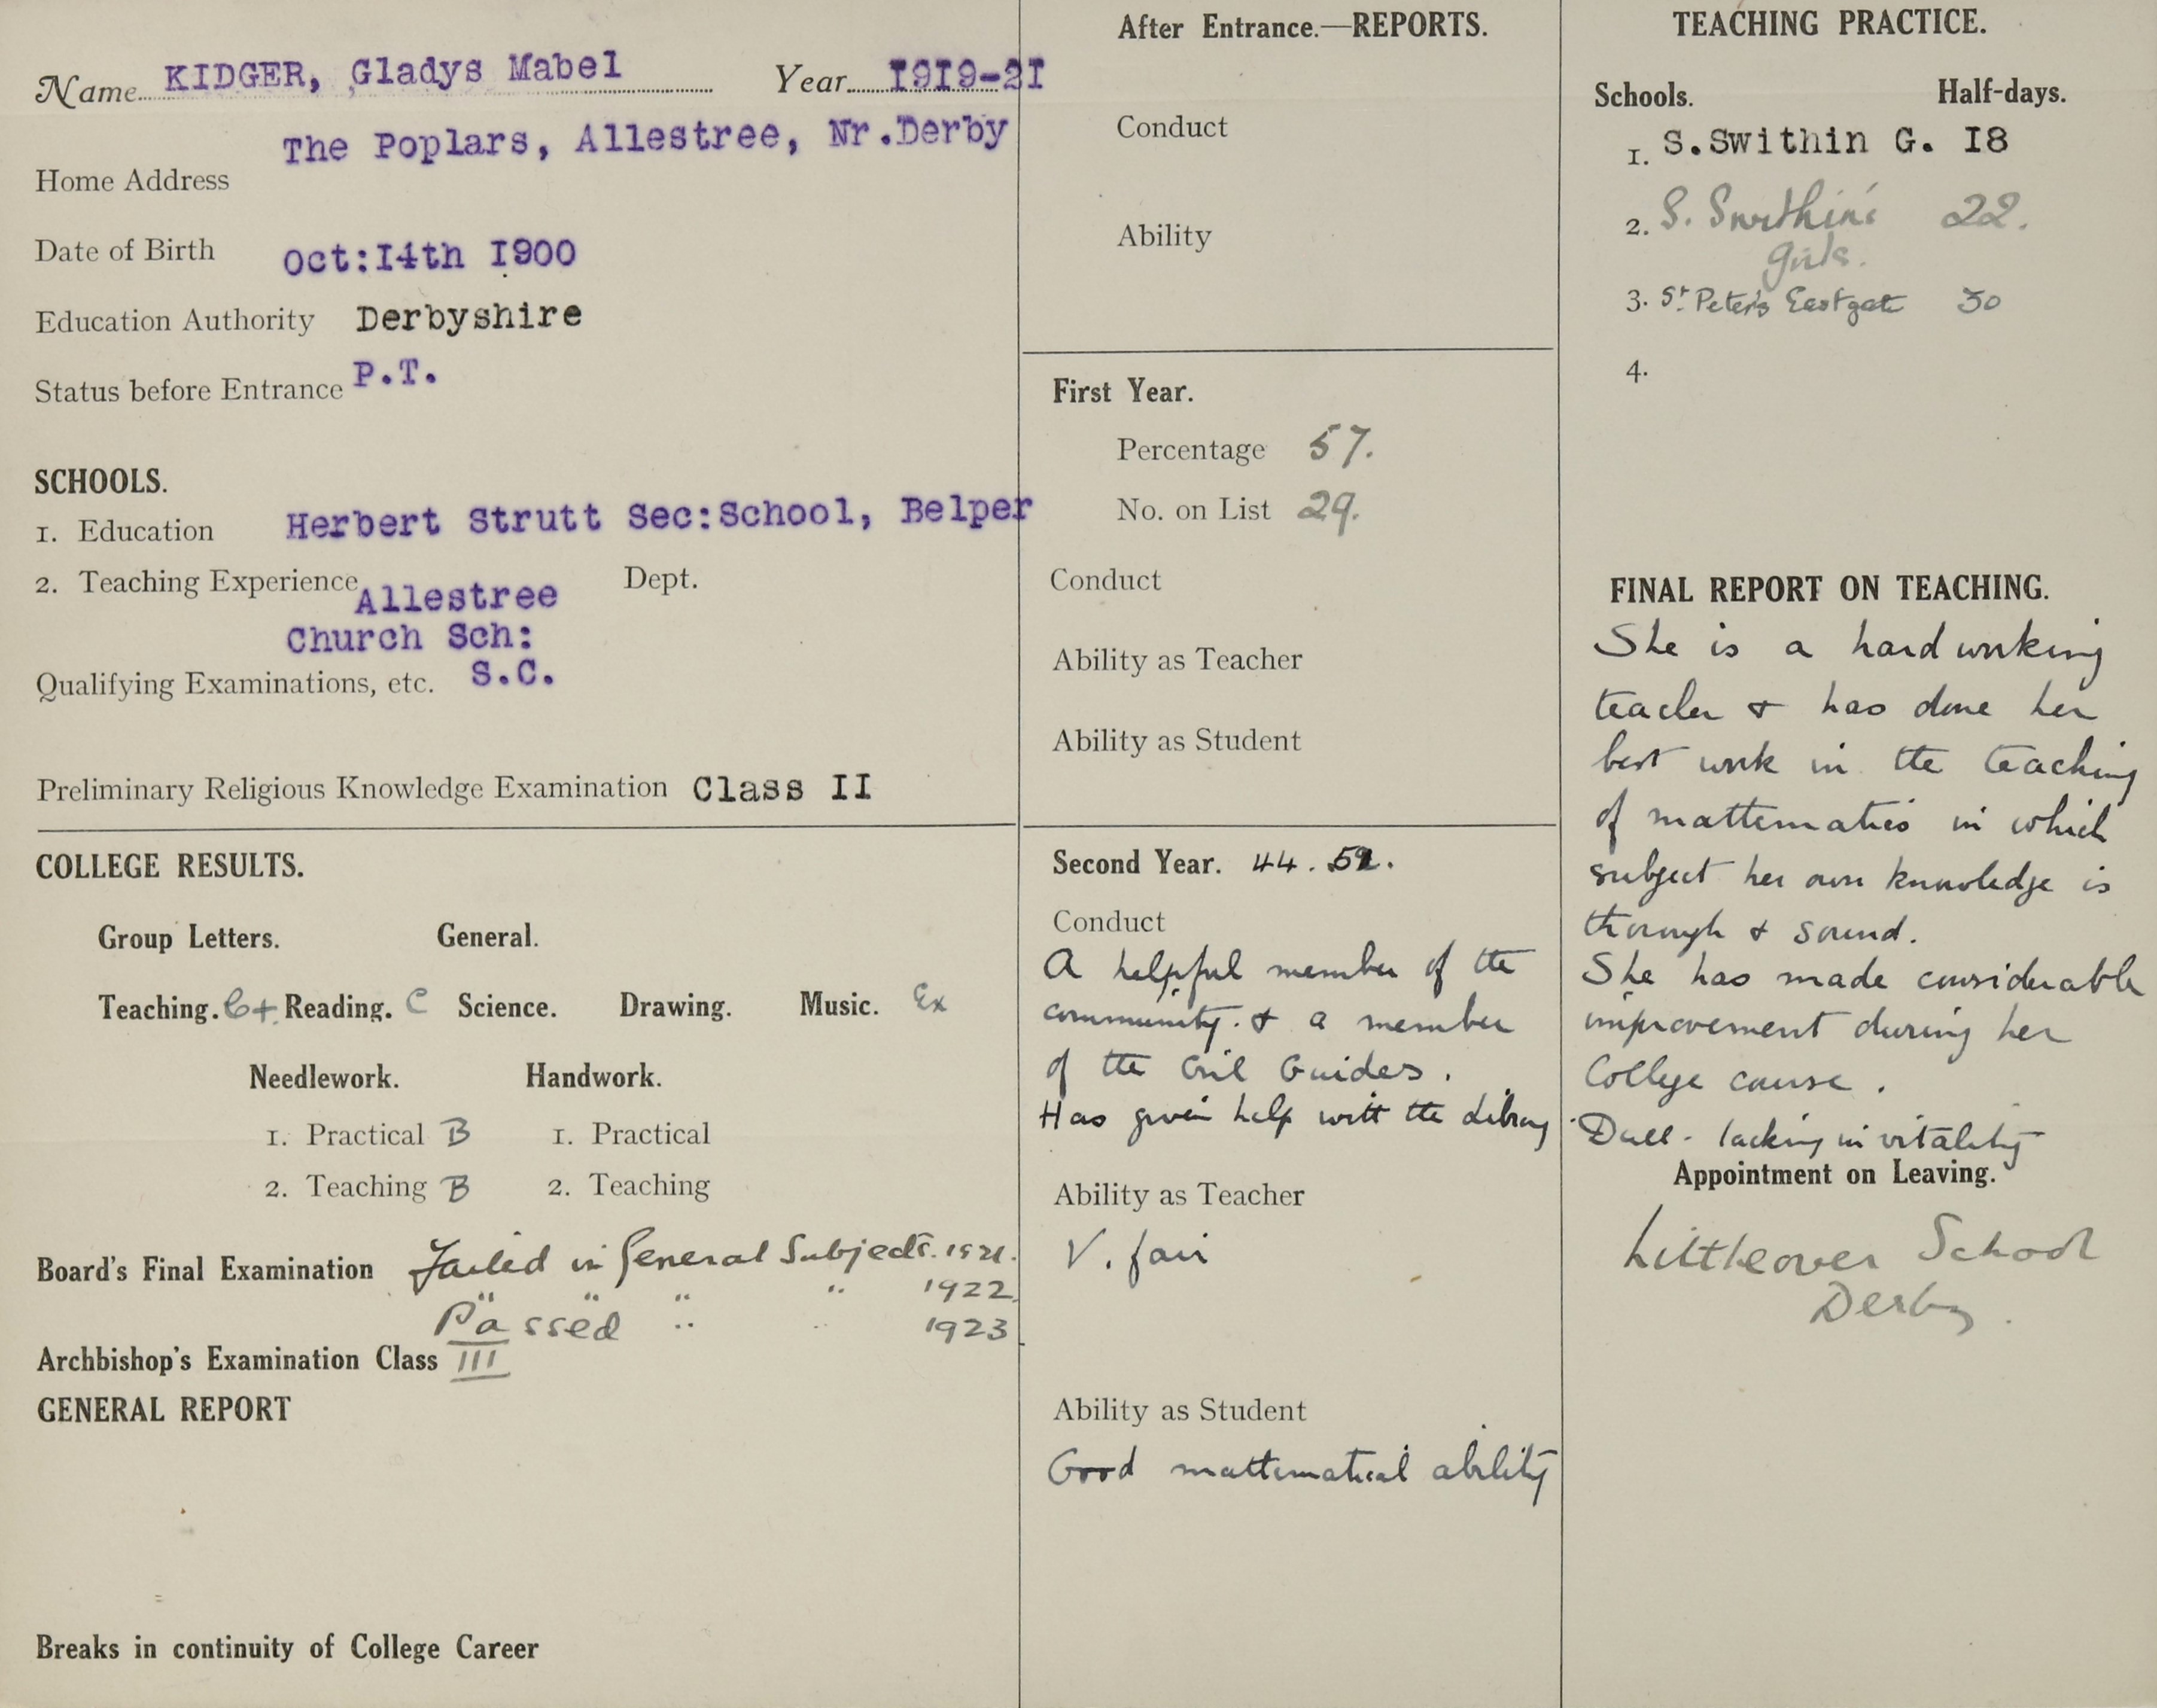 Name KIDGER, Gladys Mabel Year 1919-21
The Poplars, Allestree, Nr.Derby
Home Address
Date of Birth Oct:14th 1900
Education Authority Derbyshire
Status before Entrance P.T.
SCHOOLS.
1. Education Herbert Strutt Sec:School, Belper
2. Teaching Experience Allestree Dept.
Church Sch:
Qualifying Examinations, etc. S.C.
Preliminary Religious Knowledge Examination Class II
COLLEGE RESULTS.
Group Letters. General.
Teaching. C+ Reading. C Science. Drawing. Music. Ex
Needlework. Handwork.
1. Practical B 1. Practical
2. Teaching B 2. Teaching
Board's Final Examination Failed in General Subjects. 1921.
" " " " 1922.
Passed " " 1923
Archbishop's Examination Class III
GENERAL REPORT
Breaks in continuity of College Career
After Entrance.—REPORTS.
Conduct
Ability
First Year.
Percentage 57.
No. on List 29.
Conduct
Ability as Teacher
Ability as Student
Second Year. 44.
Conduct
A helpful member of the
community. & a member
of the Girl Guides.
Has given help with the Library
Ability as Teacher
V. fair
Ability as Student
Good mathematical ability
TEACHING PRACTICE.
Schools. Half-days.
1. S.Swithin G. 18
2. S. Swithin's 22.
Girls.
3. St Peter's Eastgate 30
4.
FINAL REPORT ON TEACHING.
She is a hard working
teacher & has done her
best work in the teaching
of mathematics in which
subject her own knowledge is
thorough & sound.
She has made considerable
improvement during her
College course.
Dull - lacking in vitality
Appointment on Leaving.
Littleover School
Derby.